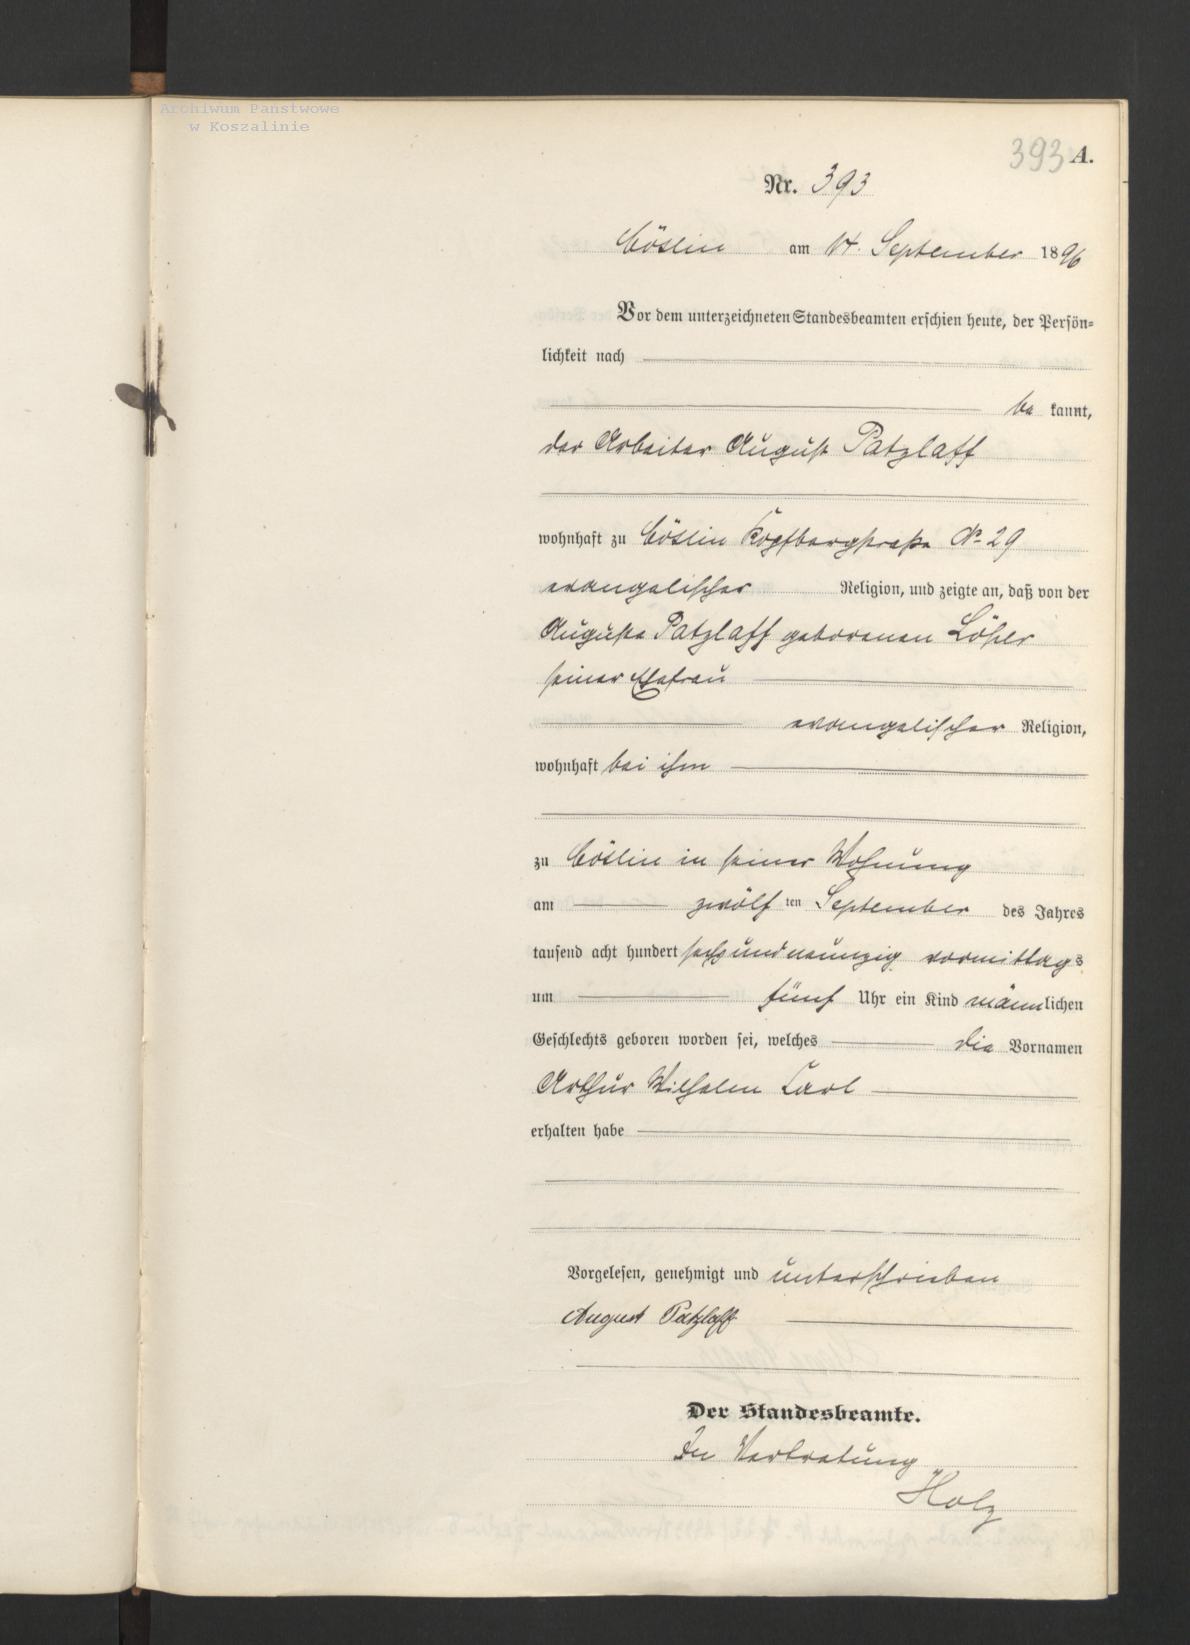 Archiwum Państwowe
w Koszalinie
393 A.
Nr. 393
Cöslin am 14. September 1896
Vor dem unterzeichneten Standesbeamten erschien heute, der Persön-
lichkeit nach
be kannt,
der Arbeiter August Patzlaff
wohnhaft zu Cöslin Kopfbergstraße No 29
evangelischer Religion, und zeigte an, daß von der
Auguste Patzlaff geborenen
seiner Ehefrau
evangelischer Religion,
wohnhaft bei ihm
zu Cöslin in seiner Wohnung
am zwölf ten September des Jahres
tausend acht hundert sechsundneunzig vormittags
um fünf Uhr ein Kind männlichen
Geschlechts geboren worden sei, welches die Vornamen
Arthur Wilhelm Carl
erhalten habe
Vorgelesen, genehmigt und unterschrieben
August Patzlaff
Der Standesbeamte.
In Vertretung
Holz